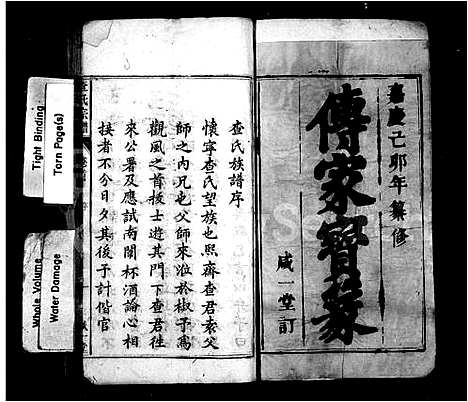 嘉慶己卯年纂修
傳家寶籙
咸一堂訂
查氏族譜序
懷寧查氏望族也熙齋查君素父
師之內兄也父師來涖於椒予爲
觀風之首拔士遊其門下查君往
來公署及應試南闈杯酒論心相
接者不今日夕其後予計偕官
查氏宗譜
Tight Binding
Torn Page(s)
Whole Volume
Water Damage